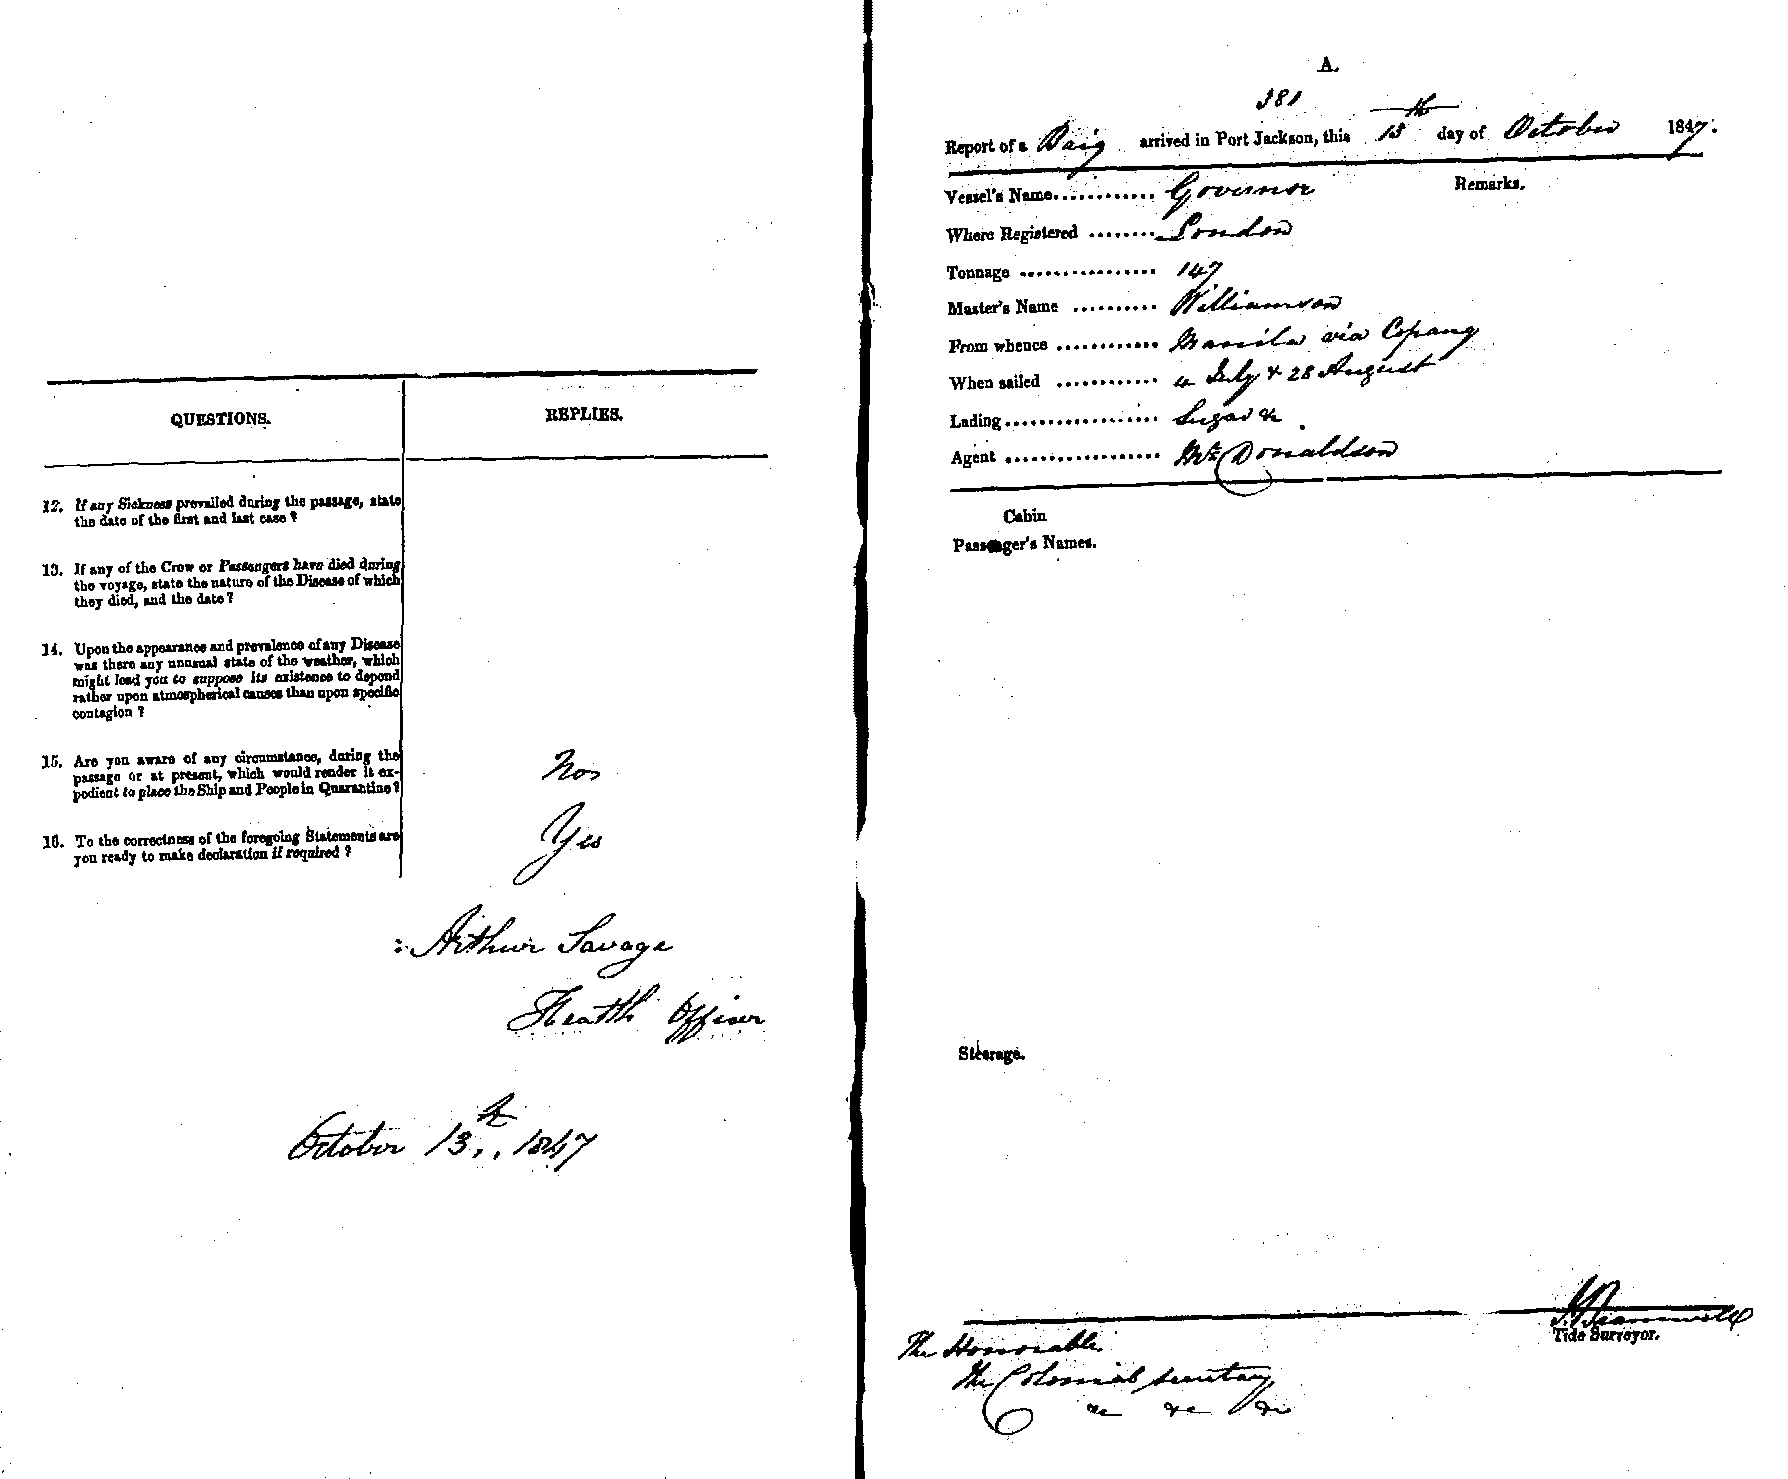 QUESTIONS.
REPLIES.
12. If any Sickness prevailed during the passage, state
the date of the first and last case ?
13. If any of the Crew or Passengers have died during
the voyage, state the nature of the Disease of which
they died, and the date ?
14. Upon the appearance and prevalence of any Disease
was there any unusual state of the weather, which
might lead you to suppose its existence to depend
rather upon atmospherical causes than upon specific
contagion ?
15. Are you aware of any circumstance, during the
passage or at present, which would render it ex-
pedient to place the Ship and People in Quarantine ?
No
16. To the correctness of the foregoing Statements are
you ready to make declaration if required ?
Yes
Arthur Savage
Health Officer
October 13th 1847
A.
381
Report of a Brig arrived in Port Jackson, this 13th day of October 1847.
Remarks.
Vessel's Name............ Governor
Where Registered ........ London
Tonnage ................ 147
Master's Name .......... Williamson
From whence ............ Manila via Copang
When sailed ............ 4 July & 28 August
Lading .................. Sugar &c
Agent .................. Mr Donaldson
Cabin
Passenger's Names.
Steerage.
Tide Surveyor.
The Honorable
The Colonial Secretary
&c &c &c